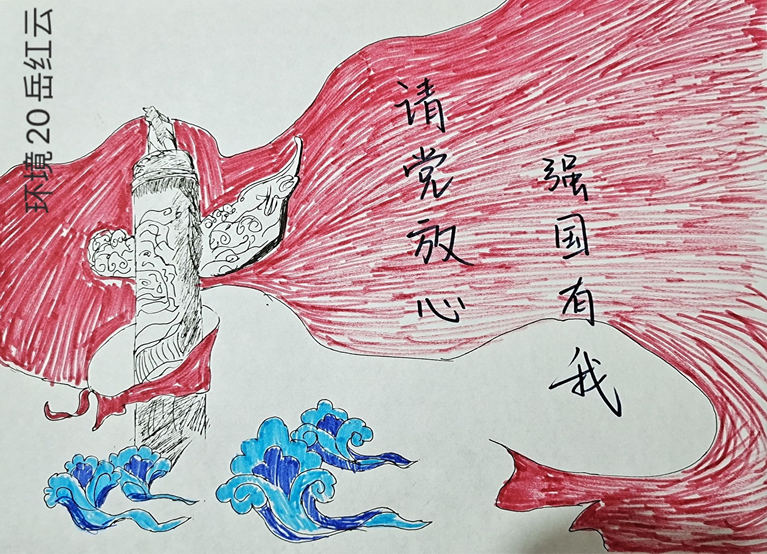 环境20岳红云
请党放心
强国有我